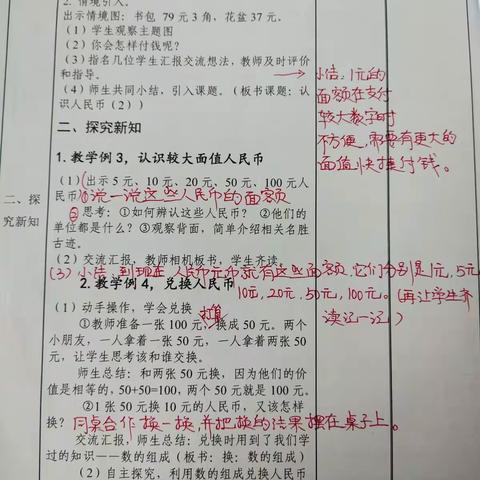 2. 情境引入。
出示情境图：书包 79 元 3 角，花盆 37 元。
（1）学生观察主题图
（2）你会怎样付钱呢？
（3）指名几位学生汇报交流想法，教师及时评价
和指导。
（4）师生共同小结，引入课题。（板书课题：认
识人民币（2））
小结：1元的
面额在支付
较大数字时
不方便，需要有更大的
面值快捷付钱。
二、探究新知
1. 教学例 3，认识较大面值人民币
（1）出示 5 元、10 元、20 元、50 元、100 元人
民币
①说一说这些人民币的面额
②思考：①如何辨认这些人民币？②他们的
单位都是什么？③观察背面，简单介绍相关名胜
古迹。
二、探
究新知
（2）交流汇报，教师相机板书，学生齐读。
（3）小结：到现在，人民币元币就有这些面额，它们分别是1元，5元
10元，20元，50元，100元。（再让学生齐
读一读）
2. 教学例 4，兑换人民币
（1）动手操作，学会兑换
①教师准备一张 100 元，换成 50 元。两个
小朋友，一人拿着一张 50 元，一人拿着两张 50
元，让学生思考该和谁交换。
师生总结：和两张 50 元换，因为他们的价
值是相等的，50+50=100，两个 50 元就是 100 元。
②1 张 50 元换 10 元的人民币，又该怎样
换？
同桌合作换一换，并把换的结果摆在桌子上。
交流汇报，师生总结：兑换时用到了我们学
过的知识——数的组成（板书：换：数的组成）
（2）自主探究，利用数的组成兑换人民币